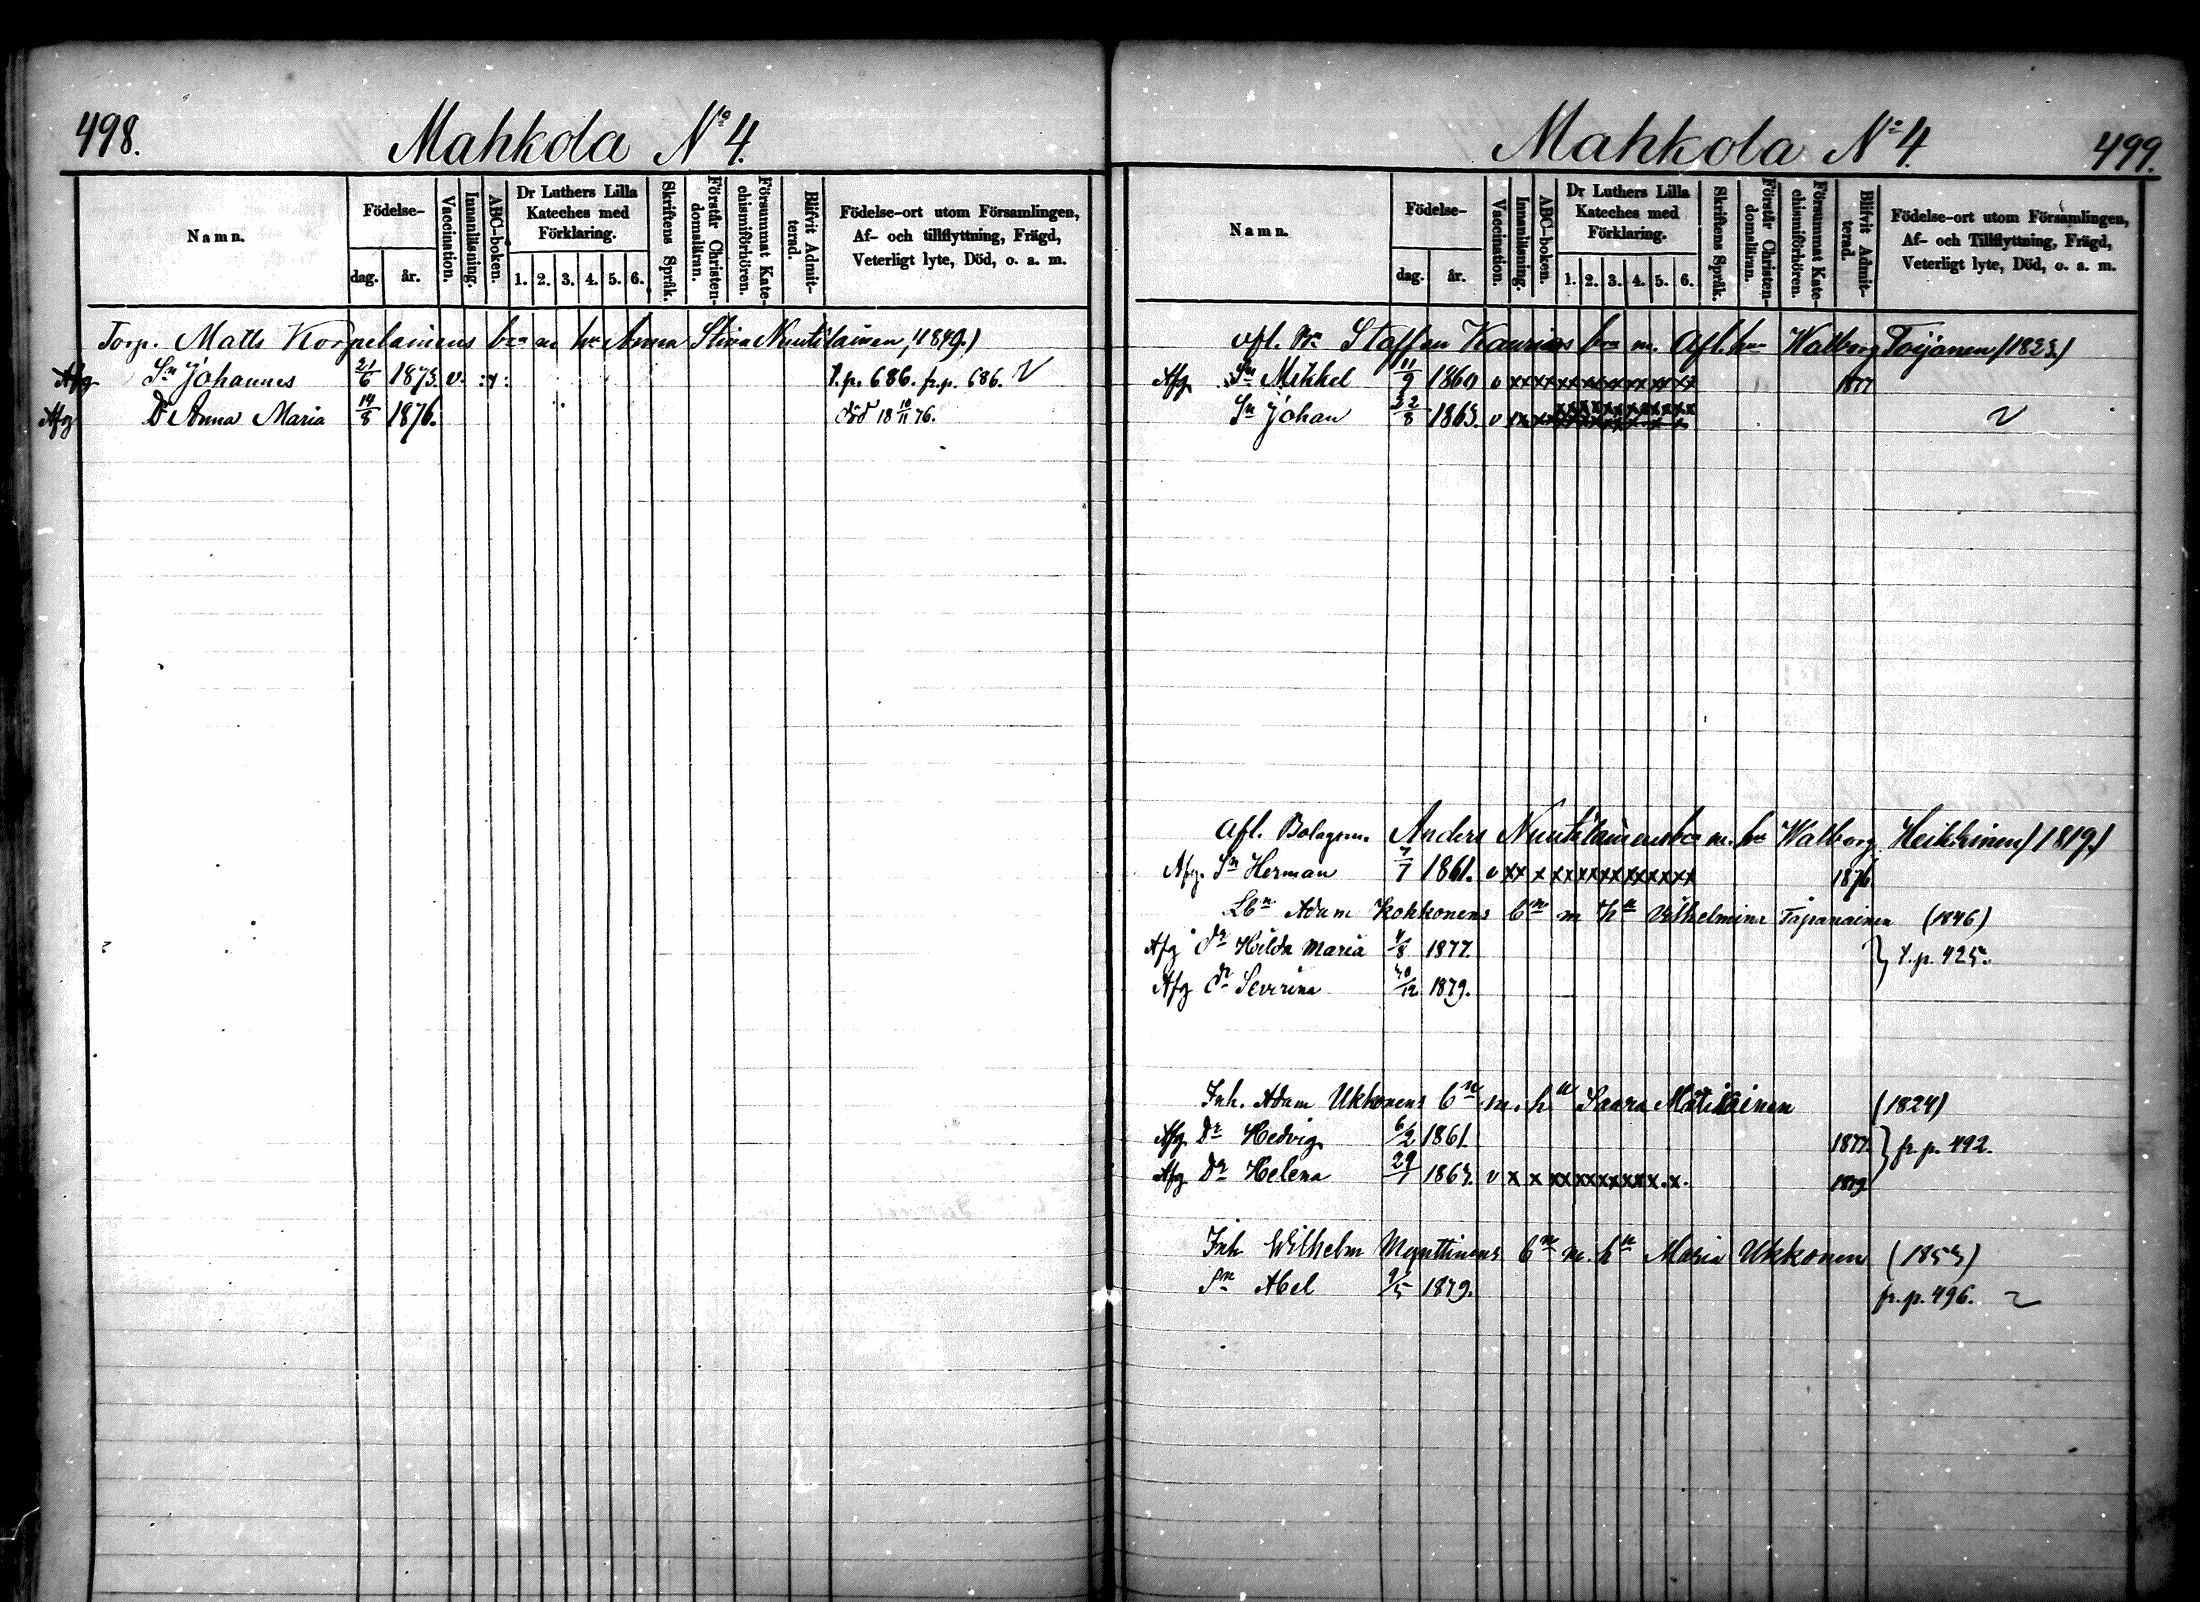 498.
Mahkola No 4.
Namn.
Födelse-
dag.
år.
Vaccination.
Innanläsning.
ABC-boken.
Dr Luthers Lilla Kateches med Förklaring.
1. 2. 3. 4. 5. 6.
Skriftens Språk.
Förstår Christendomsläran.
Försummat Katechismiförhören.
Blifvit Admitterad.
Födelse-ort utom Församlingen,
Af- och tillflyttning, Frägd,
Veterligt lyte, Död, o. a. m.
Torp. Matts Korpelainens brn m hu Anna Stina Nuutilainen, (1849.)
Afg. Sn Johannes 21/6 1873. v. t.p. 686. fr.p. 686.
Afg Dr Anna Maria 14/8 1876. död 18 10/11 76.
Mahkola No 4.
499.
Namn.
Födelse-
dag.
år.
Vaccination.
Innanläsning.
ABC-boken.
Dr Luthers Lilla Kateches med Förklaring.
1. 2. 3. 4. 5. 6.
Skriftens Språk.
Förstår Christendomsläran.
Försummat Katechismiförhören.
Blifvit Admitterad.
Födelse-ort utom Församlingen,
Af- och Tillflyttning, Frägd,
Veterligt lyte, Död, o. a. m.
Staffan brn m. Afl. hu Walborg Toijanen (1823.)
Afg. Sn Mikkel 11/9 1860 v xxxxxxxxxxxxxx 1877
Sn Johan 22/8 1863. v xxxxxxxxxxxx
Afl. Bolagsm. Anders Nuutilainens brn m. hu Walborg Heikkinen (1819.)
Afg. Sn Herman 7/7 1861. v xx x xxxxxxxxxxxx 1876
Lbn Adam Kokkonens bn m hu Vilhelmina Tapanainen (1846)
Afg dr Hilda Maria 4/8 1877. } t.p. 425.
Afg dr Severina 30/12 1879.
Inh. Adam Ukkonens bn m. hu Saara Matilainen (1824)
Afg. Dr Hedvig 6/2 1861 1877. } fr. p. 492.
Afg. Dr Helena 29/7 1863. v x x xxxxxxxxx.x. 1879
Inh Wilhelm Mynttinens bn m. hu Maria Ukkonen (1853)
Sn Abel 9/5 1879. fr. p. 496.